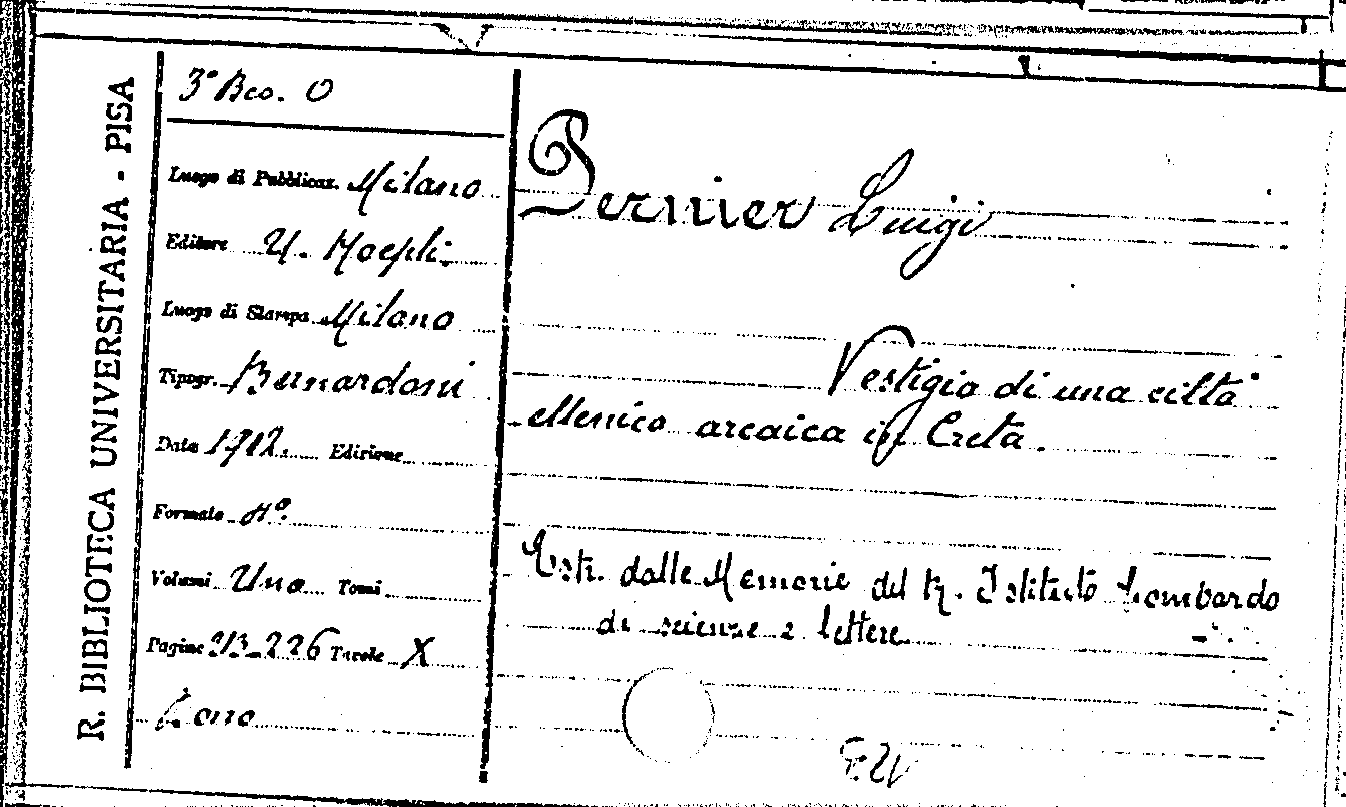 R. BIBLIOTECA UNIVERSITARIA - PISA
3° Bco. O
Luogo di Pubblicaz. Milano
Editore U. Hoepli
Luogo di Stampa Milano
Tipogr. Bernardoni
Data 1912. Edizione
Formato 4°.
Volumi Uno Tomi
Pagine 213-226 Tavole X
Dono
Pernier Luigi
Vestigia di una città
ellenica arcaica in Creta.
Estr. dalle Memorie del R. Istituto Lombardo
di scienze e lettere